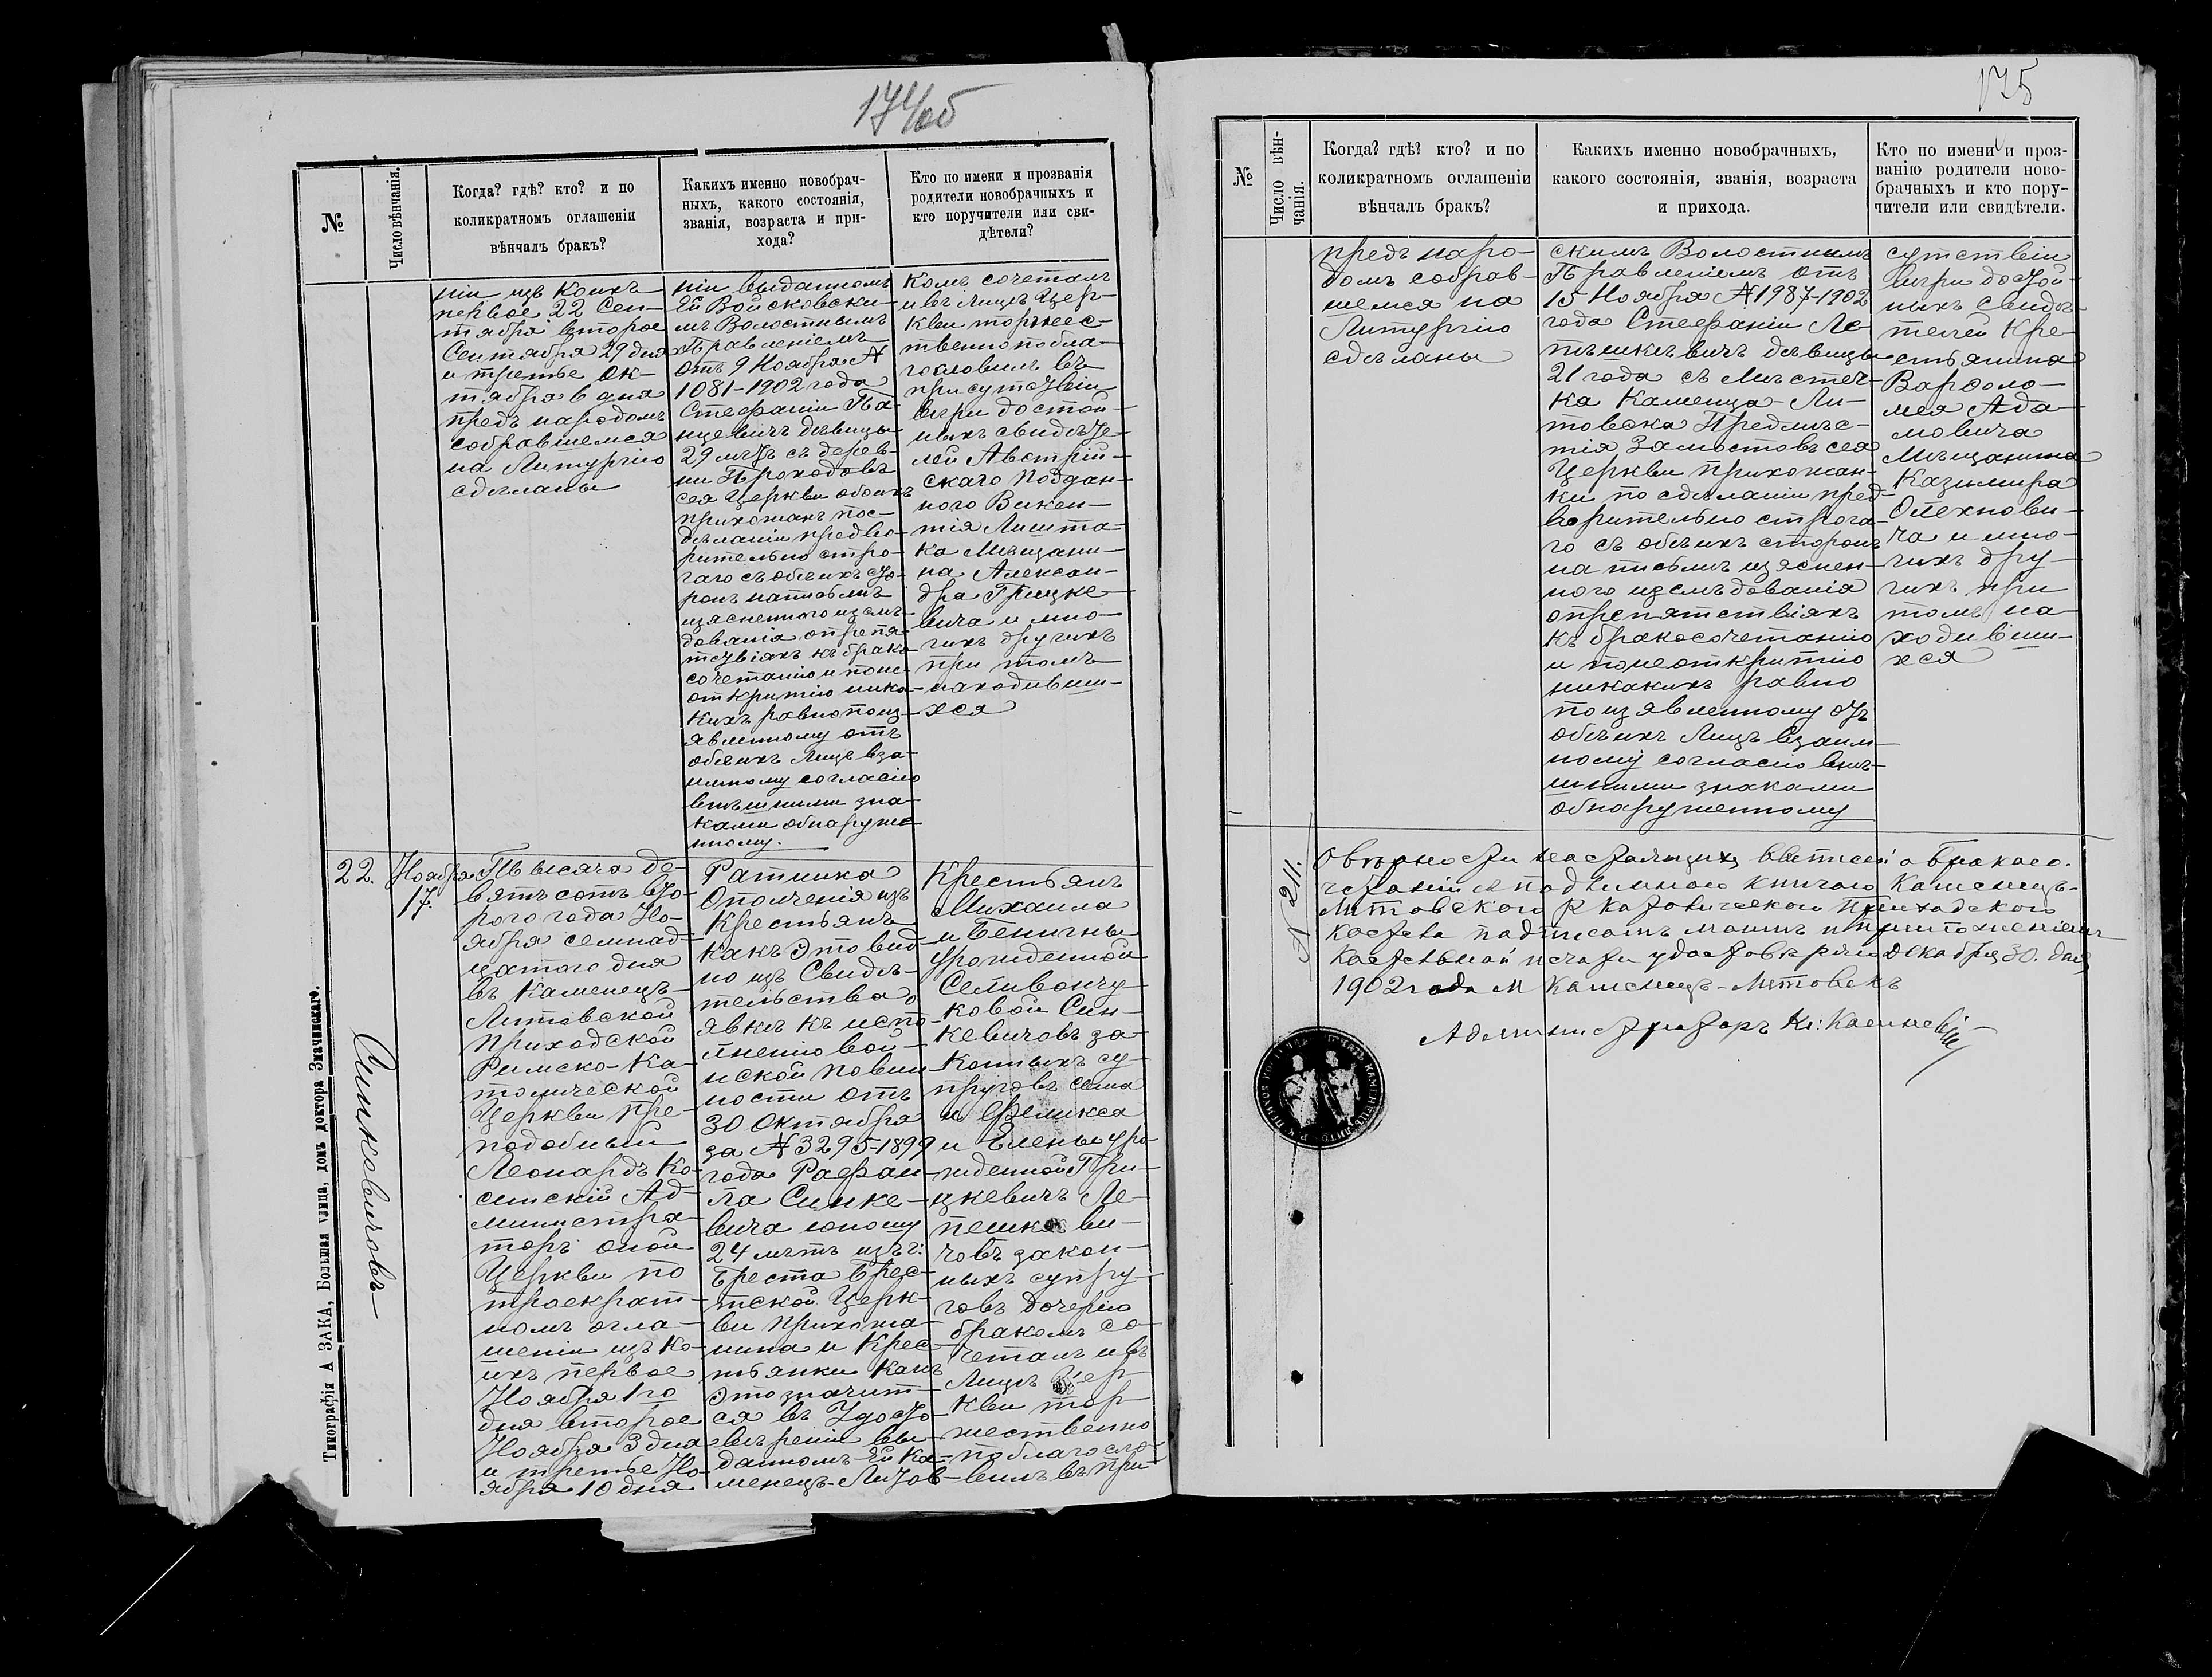 174/об
№
Число вѣнчанія.
Когда? гдѣ? кто? и по
коликратномъ оглашеніи
вѣнчалъ бракъ?
Какихъ именно новобрач-
ныхъ, какого состоянія,
званія, возраста и при-
хода?
Кто по имени и прозванія
родители новобрачныхъ и
кто поручители или сви-
дѣтели?
ніи изъ коихъ
первое 22 Сен-
тября второе
Сентября 29 дня
и третье Ок-
тября 6 дня
предъ народомъ
собравшемся
на Литургію
сдѣланы
ніи выданномъ
Ей Войсковски-
мъ Волостнымъ
Правленіемъ
отъ 9 Ноября №
1081-1902 года
Стефаніи Па-
цевичъ дѣвицы
29 лѣтъ съ дерев-
ни Проходовъ
сея Церкви обоихъ
прихожанъ пос-
дѣланіи предва-
рительно стро-
гаго съ обѣихъ сто-
ронъ написмѣ
изясненного изслѣ-
дованія опрепя-
тствіяхъ къ брако-
сочетанію и поне-
открытію ника-
кихъ равно поиз-
явленному отъ
обѣихъ Лицъ вза-
имному согласію
внѣшними зна-
ками обнаруже-
нному.
комъ сочеталъ
и въ лицѣ Цер-
кви торжес-
твенно побла-
гословилъ въ
присутствіи
вѣри достой-
ныхъ свидѣте-
лей Австрій-
скаго поддан-
ного Викен-
тія Лишта-
ка Мѣщани-
на Алексан-
дра Грицке-
вича и мно-
гихъ другихъ
при томъ
находивши-
хся
22.
Ноября
17.
Синкевичовъ
Тысяча де-
вятьсотъ вто-
рого года Но-
ября семнад-
цатого дня
въ Каменецъ-
Литовской
приходской
Римско-Ка-
толической
Церкви пре-
подобный
Леонардъ Ко-
синскій Ад-
министра-
торъ оной
Церкви по
троекрат-
номъ огла-
шеніи изъ ко-
ихъ первое
Ноября 1го
дня второе
Ноября 3 дня
и третье Но-
ября 10 дня
Ратника
Ополченія изъ
Крестьянъ
какъ Это вид-
но изъ Свидѣ-
тельства о
явкѣ къ испо-
лненію вои-
нской повин-
ности отъ
30 Октября
за № 3295-1899
года Рафаи-
ла Синке-
вича юношу
24 лѣтъ изъ г:
Бреста Брес-
тской Церк-
ви прихожа-
нина и Крес-
тьянки какъ
Это значит-
ся въ Удосто-
вѣреніи вы-
данномъ Ей Ка-
менецъ-Литов-
Крестьянъ
Михаила
и Бенигны
урожденной
Селивончу-
ковой Син-
кевичовъ за-
конныхъ су-
пруговъ сына
и Феликса
и Елены уро-
жденной Гри-
цкевичъ Ле-
пешкеви-
човъ закон-
ныхъ супру-
говъ дочерію
бракомъ со-
четалъ и въ
Лицѣ Цер-
кви тор-
жественно
поблагосло-
вилъ въ при-
Типографія А ЗАКА, Большая улица, домъ доктора Значинскаго.
175
№
Число вѣн-
чанія.
Когда? гдѣ? кто? и по
коликратномъ оглашеніи
вѣнчалъ бракъ?
Какихъ именно новобрачныхъ,
какого состоянія, званія, возраста
и прихода.
Кто по имени и проз-
ванію родители ново-
брачныхъ и кто пору-
чители или свидѣтели.
предъ наро-
домъ собрав-
шемся на
Литургію
сдѣланы
скимъ Волостнымъ
Правленіемъ отъ
15 Ноября № 1987-1902
года Стефаніи Ле-
пешкевичъ дѣвицы
21 года съ Мѣстеч-
ка Каменца-Ли-
товска Предмѣс-
тія Замостовъ сея
Церкви прихожан-
ки по сдѣланіи пред-
ворительно строга-
го съ обѣихъ сторонъ
на письмѣ изяснен-
ного изслѣдованія
опрепятствіяхъ
къ бракосочетанію
и понеоткритію
никакихъ равно
поизявленному отъ
обѣихъ Лицъ взаим-
ному согласію внѣ-
шними знаками
обнаруженному
сутствіи
вѣри достой-
ныхъ свидѣ-
телей Кре-
стьянина
Варфоло-
мея Ада-
мовича
Мѣщанина
Казимира
Олехнови-
ча и мно-
гихъ дру-
гихъ при
томъ на-
ходивши-
хся
№ 211.
О вѣрности настоящихъ выписей о бракосо-
четаніи съ подлинною книгою Каменецъ-
Литовского Р Католического Приходского
костела подписомъ моимъ и приложеніемъ
костельной печати удостовѣряю Декабря 30. дня
1902 года м Каменецъ-Литовскъ
Администраторъ Кс: